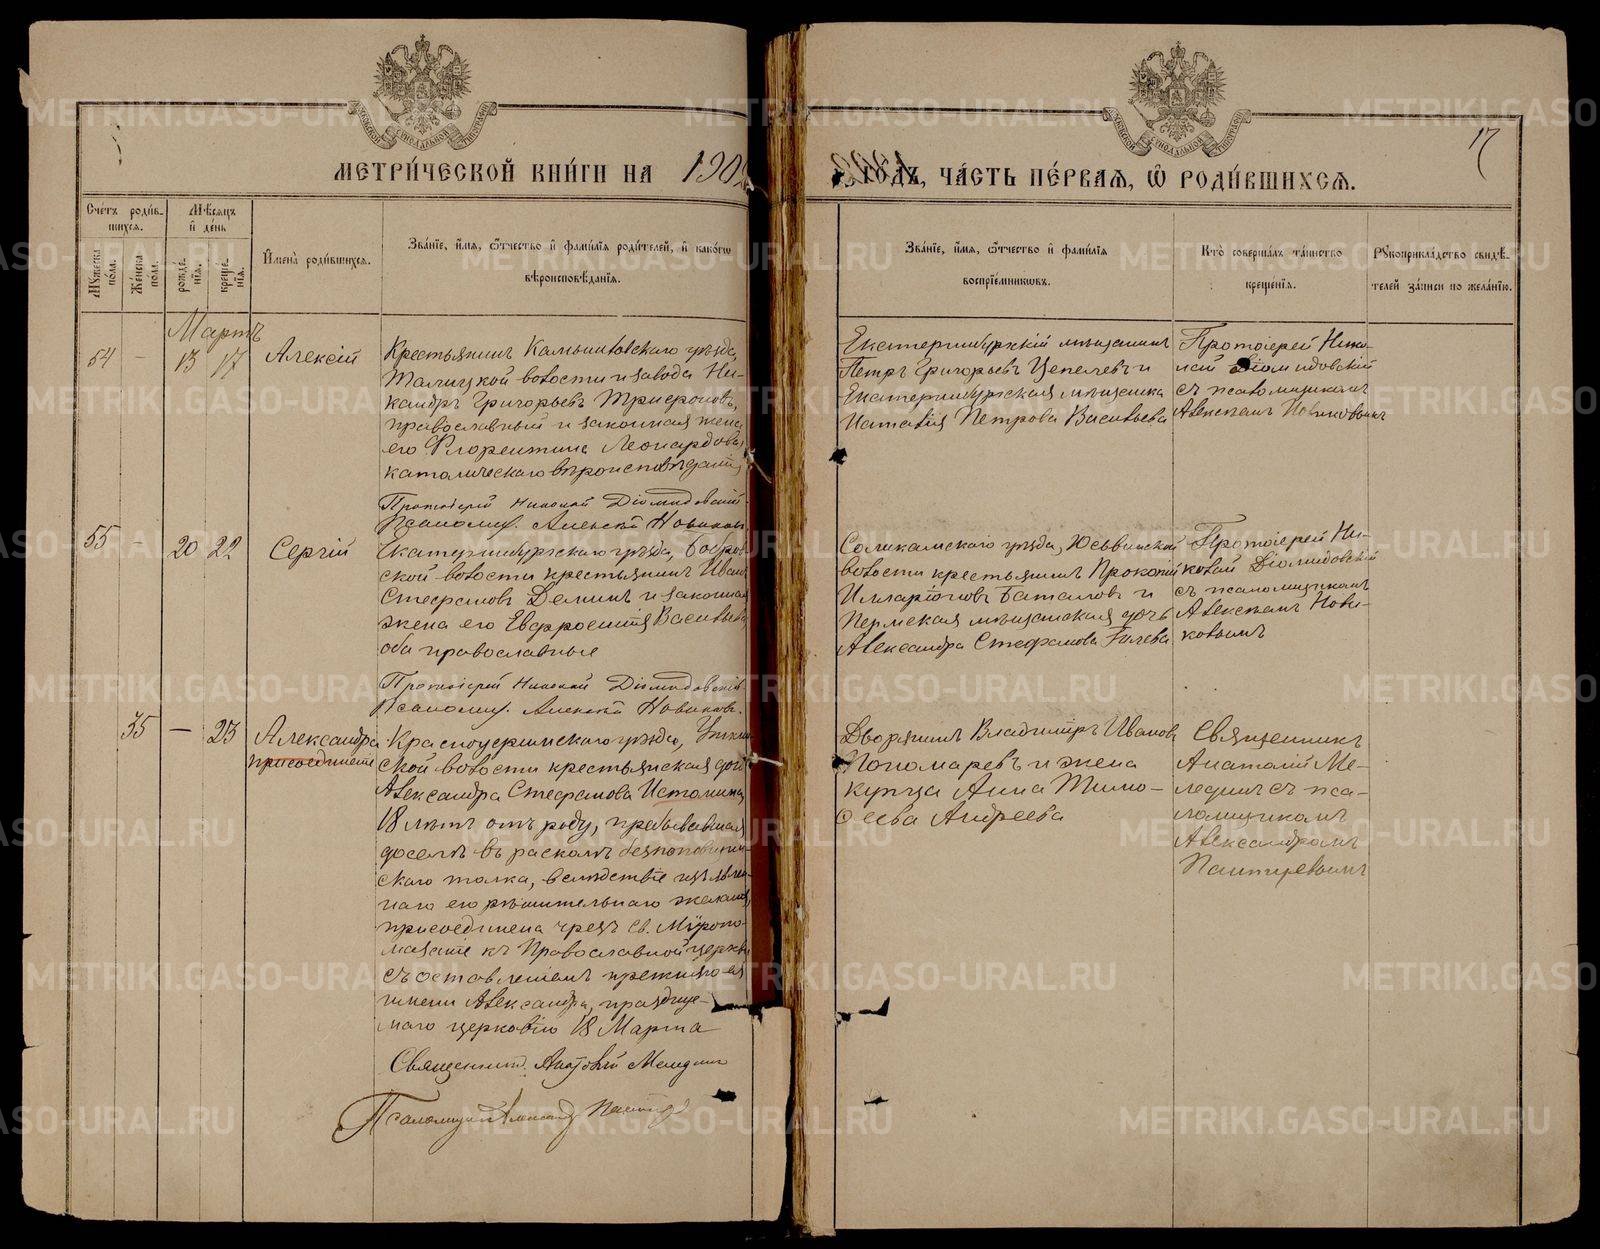 МЕТРИ́ЧЕСКОЙ КНИ́ГИ НА 190
ГО́ДЪ, ЧА́СТЬ ПЕ́РВАЯ, Ѡ РОДИ́ВШИХСЯ.
17
Сче́тъ роди́в-
шихся.
Му́жеска по́ла.
Же́нска по́ла.
Мѣ́сяцъ
и҆ де́нь
рожде́-
нїѧ.
креще́-
нїѧ.
И҆мена̀ роди́вшихся.
Зва́нїе, и҆́мѧ, ѻ҆́тчество и҆ фами́лїѧ роди́телей, и҆ како́гѡ
вѣроисповѣ́данїѧ.
Зва́нїе, и҆́мѧ, ѻ҆́тчество и҆ фами́лїѧ
воспрїе́мникѡвъ.
Кто̀ соверша́лъ та́инство
креще́нїѧ.
Рꙋкоприкла́дство свидѣ́-
телей за́писи по жела́нїю.
Мартъ
54 - 13 17 Алексій
Крестьянинъ Камышловскаго уѣзда,
Талицкой волости и завода Ни-
кандръ Григорьевъ
православный и законная жена
его Флорентина Леонардова
католическаго вѣроисповѣданія
Протоіерей Николай Діомидовскій
Псаломщ. Алексѣй Новиковъ
Екатеринбургскій мѣщанинъ
Петръ Григорьевъ Цепелевъ и
Екатеринбургская мѣщанка
Наталія Петрова Васильева
Протоіерей Нико-
лай Діомидовскій
съ псаломщикомъ
Алексѣемъ Новиковымъ
55 - 20 22 Сергій
Екатеринбургскаго уѣзда,
ской волости крестьянинъ Иванъ
Стефановъ Деминъ и законная
жена его Евфросинія Васильева
оба православные
Протоіерей Николай Діомидовскій
Псаломщ. Алексѣй Новиковъ.
Соликамскаго уѣзда, Юсьвинской
волости крестьянинъ Прокопій
Илларіоновъ Баталовъ и
Пермская мѣщанская дочь
Александра Стефанова
Протоіерей Ни-
колай Діомидовскій
съ псаломщикомъ
Алексѣемъ Нови-
ковымъ
35 — 23 Александра
присоединеніе
Красноуфимскаго уѣзда,
ской волости крестьянская дочь
Александра Стефанова Истомина
18 лѣтъ отъ роду, пребывавшая
доселѣ въ расколѣ безпоповщин-
скаго толка, вслѣдствіе изъявлен-
наго ею рѣшительнаго желанія,
присоединена чрезъ св. Мѵропо-
мазаніе къ Православной церкви
съ оставленіемъ прежняго ея
имени Александра, празднуе-
маго церковію 18 Марта
Священникъ Анатолій Меледин
Псаломщикъ Александръ
Дворянинъ Владиміръ Ивановъ
Пономаревъ и жена
купца Анна Тимо-
феева Андреева
Священникъ
Анатолій Ме-
лединъ съ пса-
ломщикомъ
Александромъ
METRIKI.GASO-URAL.RU